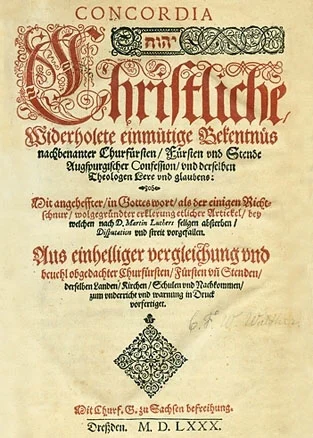 CONCORDIA
יהוה
Christliche/
Widerholete einmütige Bekentnüs
nachbenanter Churfürsten/ Fürsten vnd Stende
Augspurgischer Confession/ vnd derselben
Theologen Lere vnd glaubens:
Mit angeheffter/ in Gottes wort/ als der einigen Richt-
schnur/ wolgegründter erklerung etlicher Artickel/ bey
welchen nach D. Martin Luthers seligen absterben/
Disputation vnd streit vorgefallen.
Aus einhelliger vergleichung vnd
beuehl obgedachter Churfürsten/ Fürsten vñ Stenden/
derselben Landen/ Kirchen/ Schulen vnd Nachkommen/
zum vnderricht vnd warnung in Druck
vorfertiget.
Mit Churf. G. zu Sachsen befreihung.
Dreßden. M. D. LXXX.